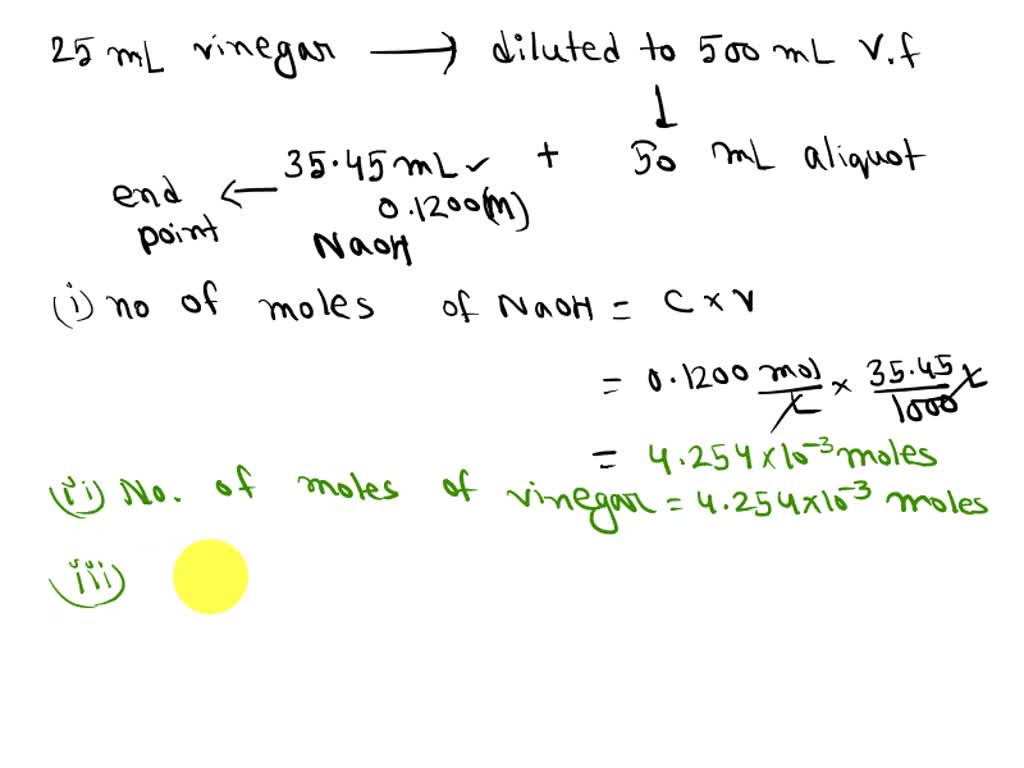 25 mL vinegar → diluted to 500 mL V.f
↓
35.45 mL ✓ + 50 mL aliquot
end point ← 0.1200(M)
NaOH
(i) no of moles of NaOH = C × V
= 0.1200 mol/L × 35.45/1000 L
= 4.254×10⁻³ moles
(ii) No. of moles of vinegar = 4.254×10⁻³ moles
(iii)